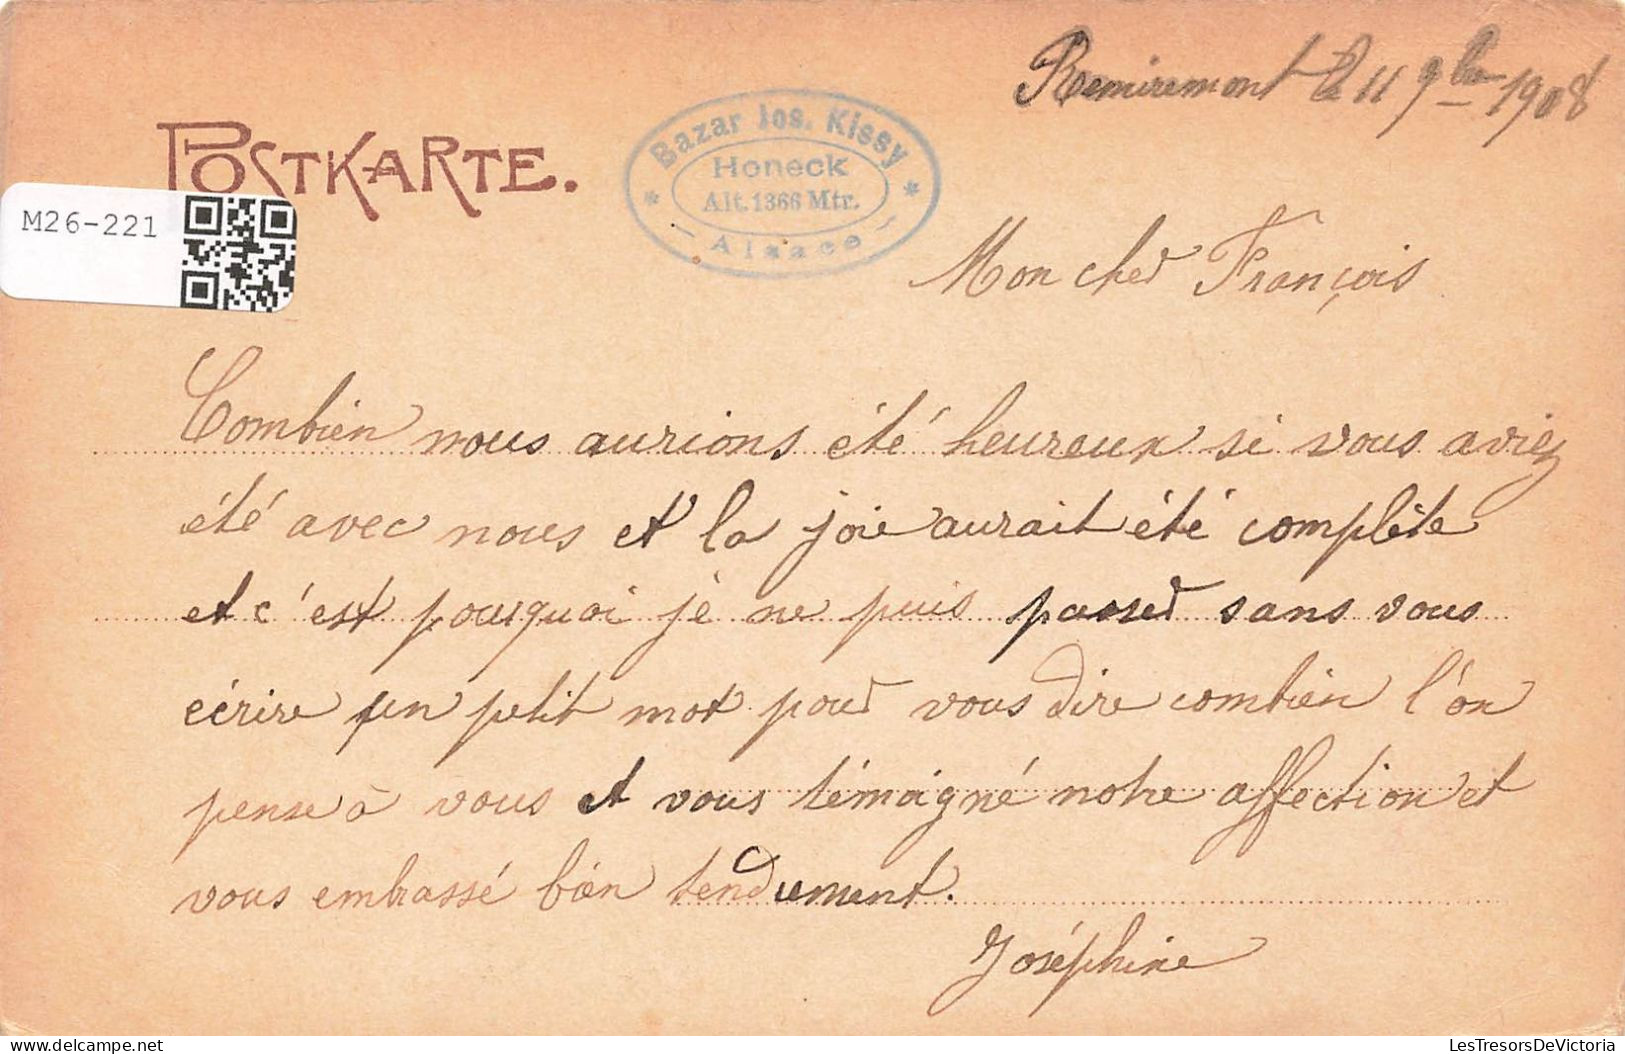 Remiremont le 11 9bre 1908
POSTKARTE.
Bazar Jos. Kissy
Honeck
Alt. 1366 Mtr.
Alsace
M26-221
Mon cher François
Combien nous aurions été heureux si vous aviez
été avec nous et la joie aurait été complète
et c'est pourquoi je ne puis passer sans vous
écrire un petit mot pour vous dire combien l'on
pense à vous et vous témoigné notre affection et
vous embrassé bien tendrement.
Joséphine
LesTresorsDeVictoria
www.delcampe.net